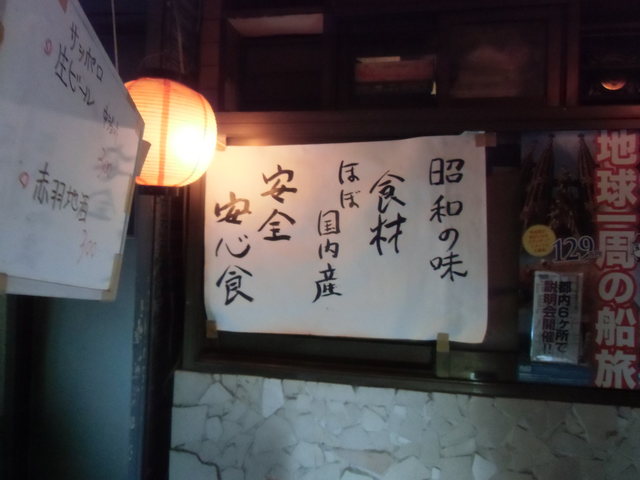 昭和の味
食材
ほぼ国内産
安全
安心食
サッポロ
生ビール
赤羽地酒
地球一周の船旅
129
都内6ヶ所で
説明会開催!!